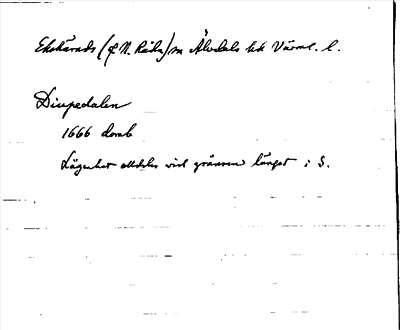 Ekshärads (f N. Råda) sn Älvdals hd Värml. l.
Diupedalen
1666 domb
Lägenhet alldeles vid gränsen längst i S.